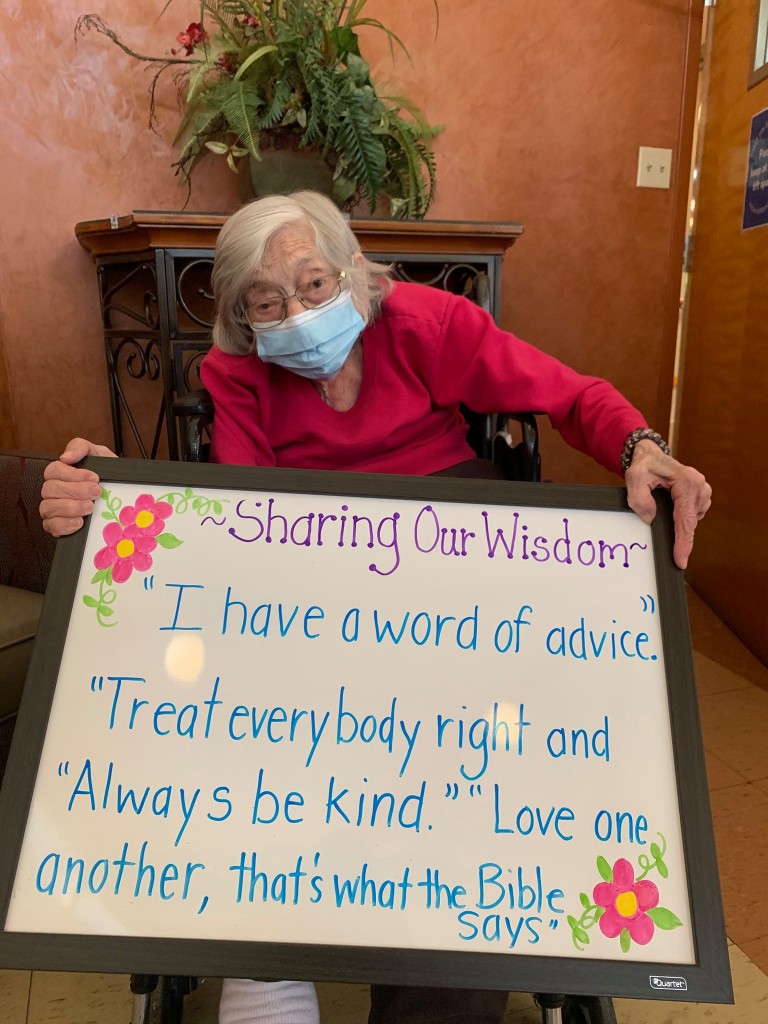 ~Sharing Our Wisdom~
"I have a word of advice."
"Treat everybody right and
"Always be kind." "Love one
another, that's what the Bible
says"
Quartet